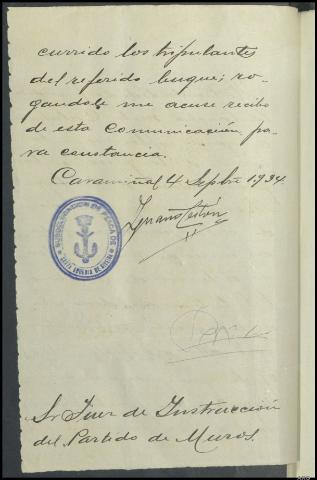 currido los tripulantes
del referido buque; ro-
gandole me acuse recibo
de esta comunicación pa-
ra constancia.
Caramiñal 4 Sepbre 1934.
SUBDELEGACION DE PESCA DE
SANTA EUGENIA DE RIVEIRA
Sr Juez de Instrucción
del Partido de Muros.